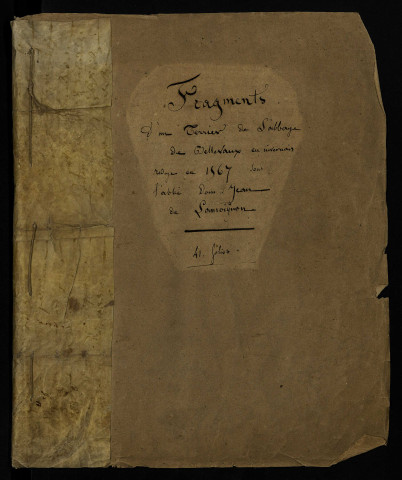 Fragments
d'un Terrier de l'abbaye
de Bellevaux en nivernois
rédigé en 1567 sous
l'abbé dom Jean
de Lamoignon
41. folios.